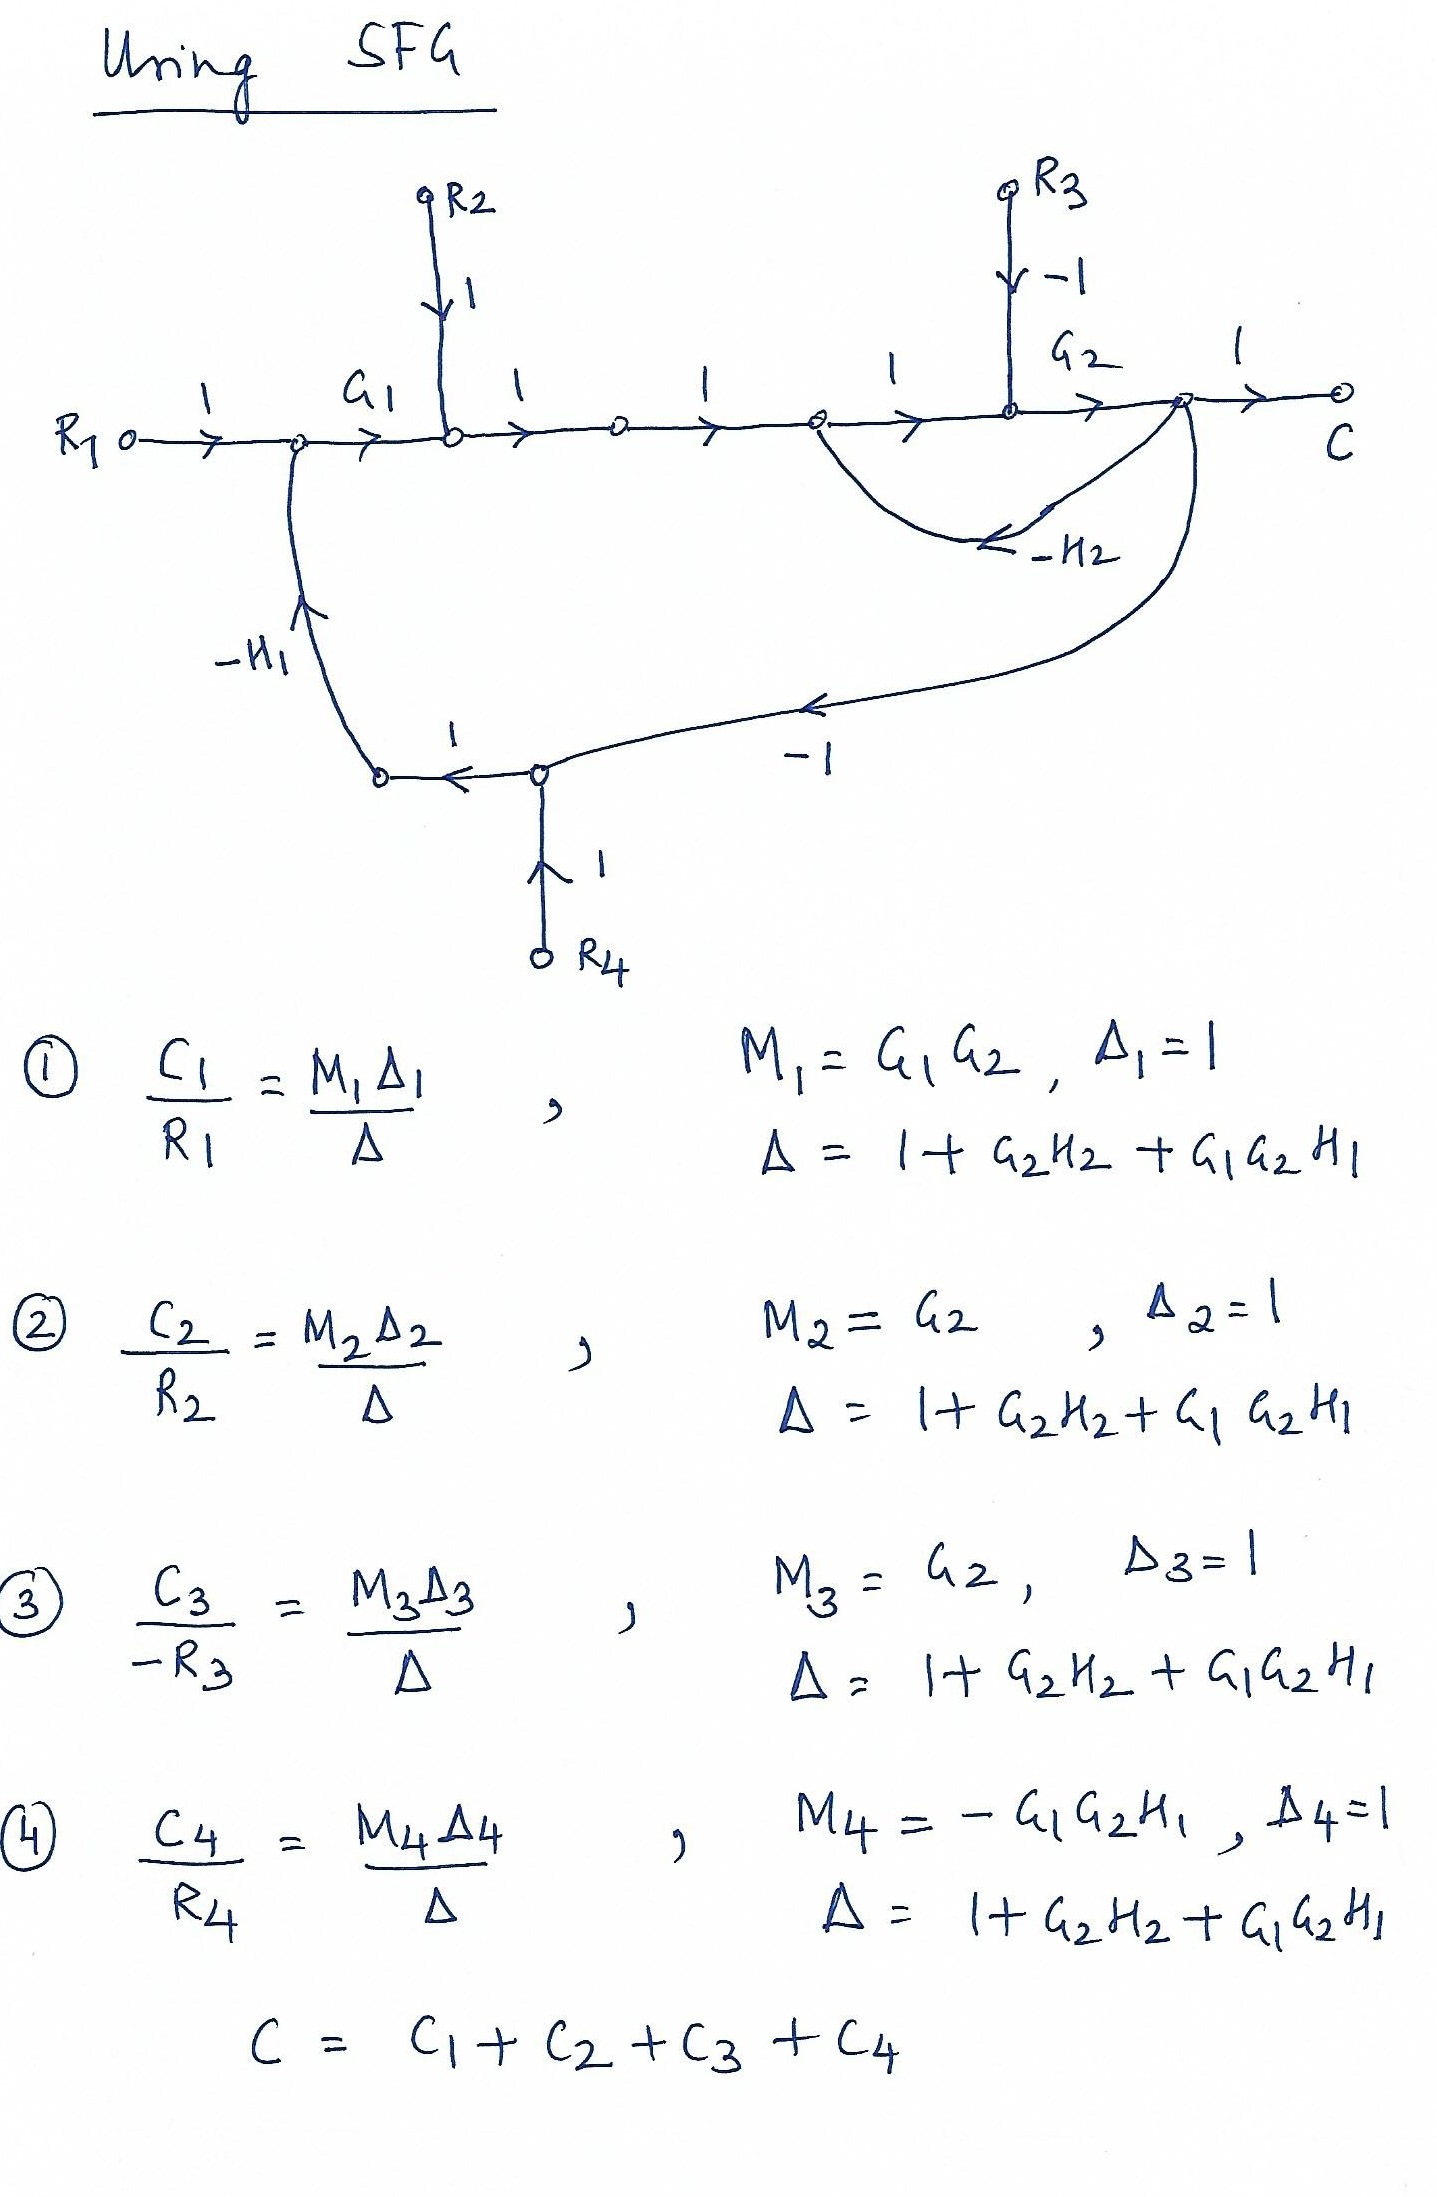 Using SFG
R2
R3
1
-1
1
G1
1
1
1
G2
1
R1
C
-H2
-H1
1
-1
1
R4
① C1/R1 = M1 Δ1/Δ , M1 = G1 G2 , Δ1 = 1
Δ = 1 + G2H2 + G1G2H1
② C2/R2 = M2 Δ2/Δ , M2 = G2 , Δ2 = 1
Δ = 1 + G2H2 + G1 G2H1
③ C3/-R3 = M3Δ3/Δ , M3 = G2 , Δ3 = 1
Δ = 1 + G2H2 + G1G2H1
④ C4/R4 = M4 Δ4/Δ , M4 = - G1G2H1 , Δ4 = 1
Δ = 1 + G2H2 + G1G2H1
C = C1 + C2 + C3 + C4